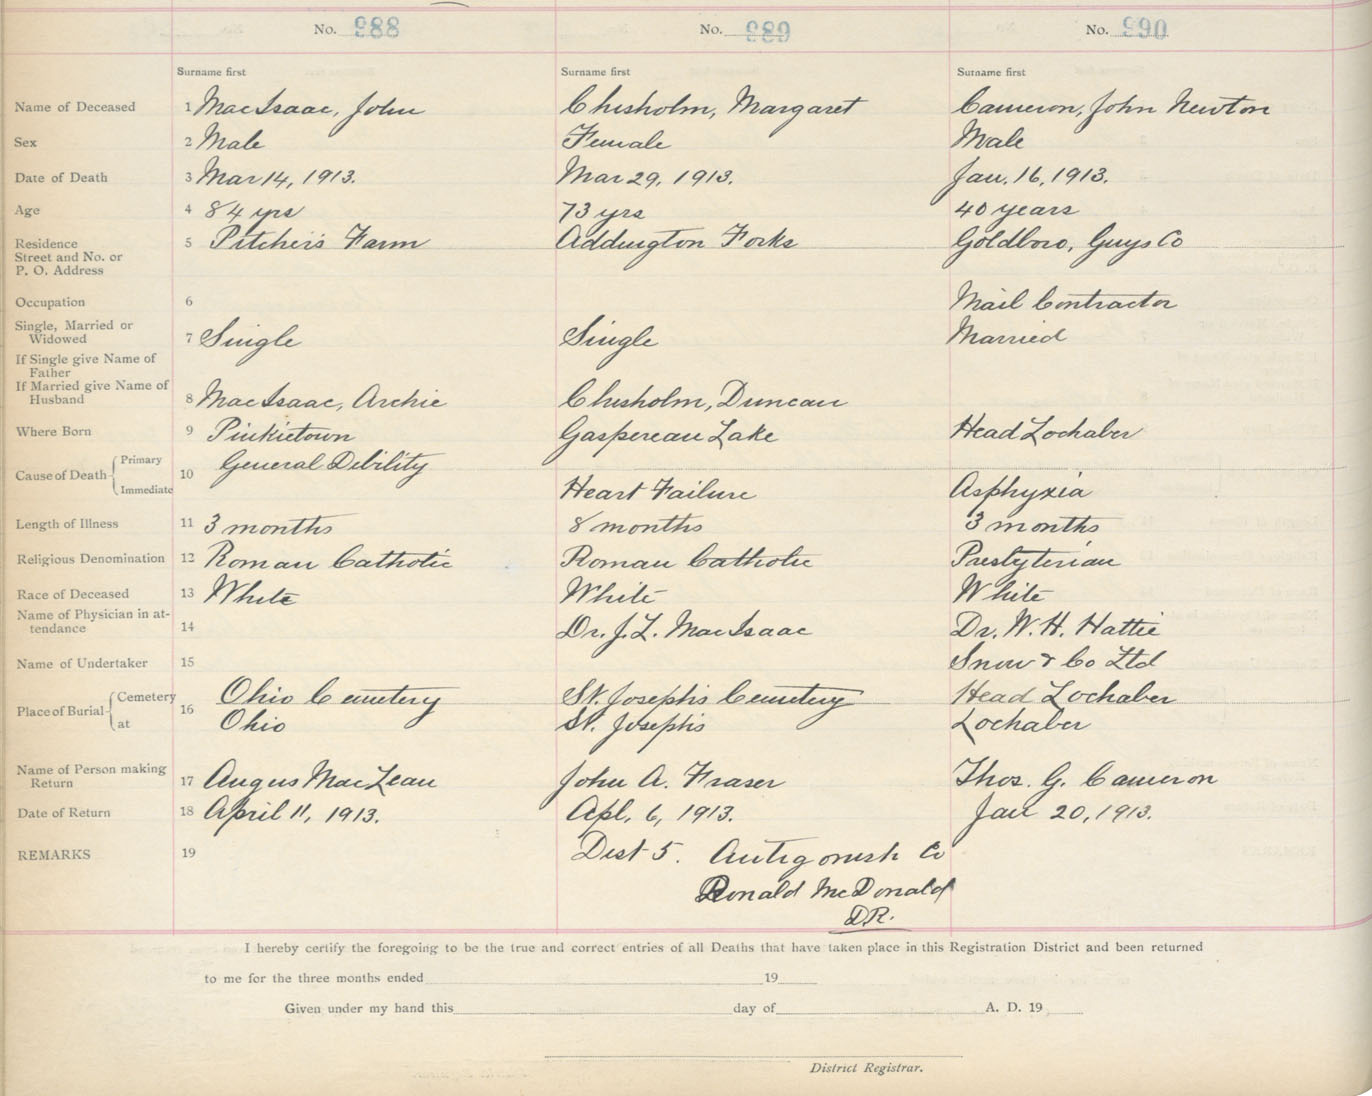 No. 988 No. 989 No. 990
Surname first Surname first Surname first
Name of Deceased 1 MacIsaac, John Chisholm, Margaret Cameron, John Newton
Sex 2 Male Female Male
Date of Death 3 Mar 14, 1913. Mar 29, 1913. Jan. 16, 1913.
Age 4 84 yrs 73 yrs 40 years
Residence 5 Pitcher's Farm Addington Forks Goldboro, Guys Co
Street and No. or
P. O. Address
Occupation 6 Mail Contractor
Single, Married or
Widowed 7 Single Single Married
If Single give Name of
Father
If Married give Name of
Husband 8 MacIsaac, Archie Chisholm, Duncan
Where Born 9 Pinkietown Gaspereau Lake Head Lochaber
Cause of Death Primary 10 General Debility
Immediate Heart Failure Asphyxia
Length of Illness 11 3 months 8 months 3 months
Religious Denomination 12 Roman Catholic Roman Catholic Presbyterian
Race of Deceased 13 White White White
Name of Physician in at-
tendance 14 Dr. J. L. MacIsaac Dr. W. H. Hattie
Name of Undertaker 15 Snow & Co Ltd
Place of Burial Cemetery 16 Ohio Cemetery St. Joseph's Cemetery Head Lochaber
at Ohio St. Joseph's Lochaber
Name of Person making
Return 17 Angus MacLean John A. Fraser Thos. G. Cameron
Date of Return 18 April 11, 1913. Apl. 6, 1913. Jan 20, 1913.
REMARKS 19 Dist 5. Antigonish Co
Ronald McDonald
D.R.
I hereby certify the foregoing to be the true and correct entries of all Deaths that have taken place in this Registration District and been returned
to me for the three months ended 19
Given under my hand this day of A. D. 19
District Registrar.